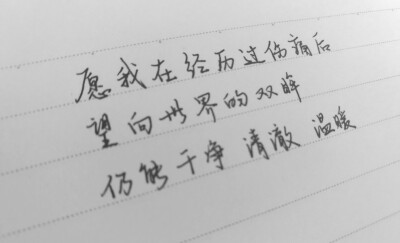 愿我在经历过伤痛后
望向世界的双眸
仍能干净 清澈 温暖